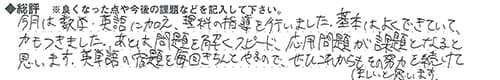 ◆総評 ※良くなった点や今後の課題などを記入して下さい。
今月は数学・英語に加え、理科の指導を行いました。基本はよくできていて、
力もつきました。あとは問題を解くスピード、応用問題が課題となると
思います。英単語の宿題を毎回きちんとやるので、ぜひこれからもその努力を続けて
ほしいと思います。